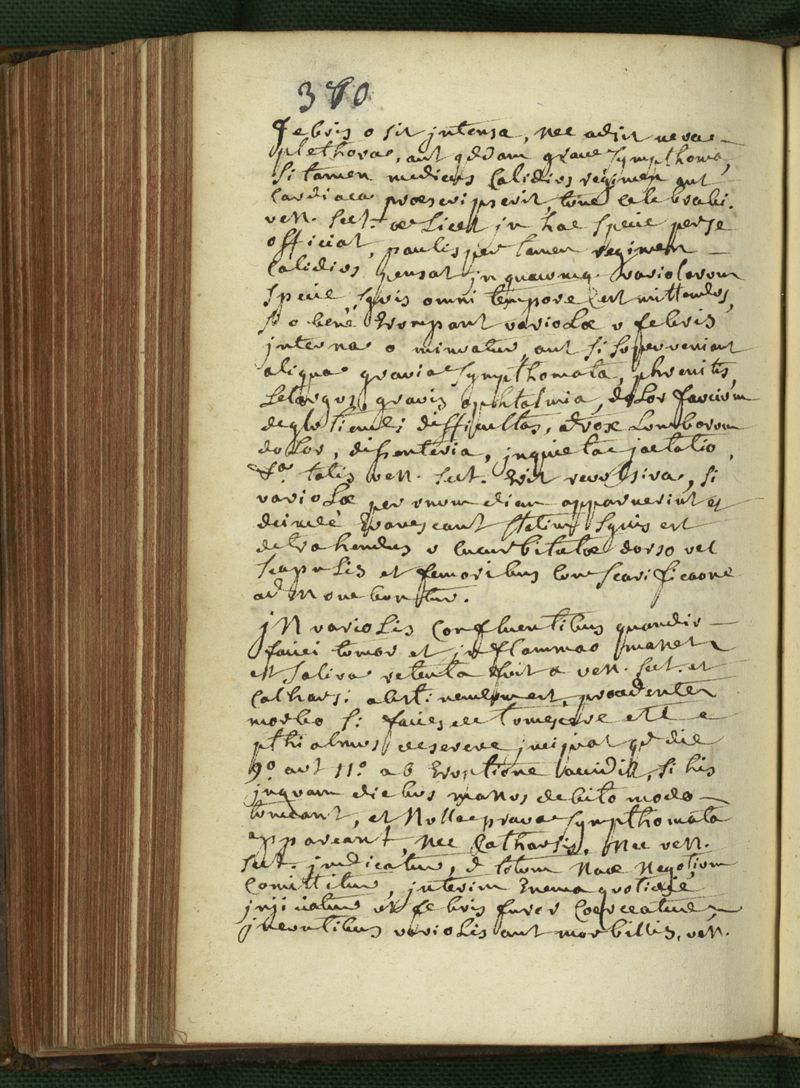 380
febris o sit intensa, nec adsit vera
plethora, aut qddam grave sympthoma,
si tamen medicus calidius regimen aut
cardiaca præscripserit tunc celebrabi.
ven. sect. æ licet in hac specie per se
officiat, paulisper tamen regimen
calidius pensat, in quacumq. variolarum
specie sguis omni tempore est mittendus,
si o bene erumpant variolæ v febris
interna o minuatur, aut si superveniant
aliqua gravia sympthomata, phrenitis,
letargus, gravis ophtalmia, dolor faucium
deglutiendi difficultas, atrox lumborum
dolor, disenteria, inquieta jactatio,
talis ven. sect. erit revulsiva, si
variolæ per unum diem apparuerint et
deinde evanescant statim sguis est
detrahendus v cucurbitatæ dorso vel
scapulis et femoribus cum scarificaone
admovebuntur.
in variolis confluentibus quandiu
faciei tumor et inflammao manet
et saliva retenta fuit a ven. sect. et
catharsi abstinendum est, procedente
morbo si facies detumescere et
pthialmus decrescere incipiat qd die
9º aut 11º ab eruptione accidit, si his
inquam diebus manus debito modo
tumeant, et nulla prava sympthomata
appareant, nec catharsis, nec ven.
sect. indicatur, totum naæ negotium
comittitur, interim enema quotidie
injiciatur ut febris furor coerceatur
ineuntibus variolis aut morbillis, ven.